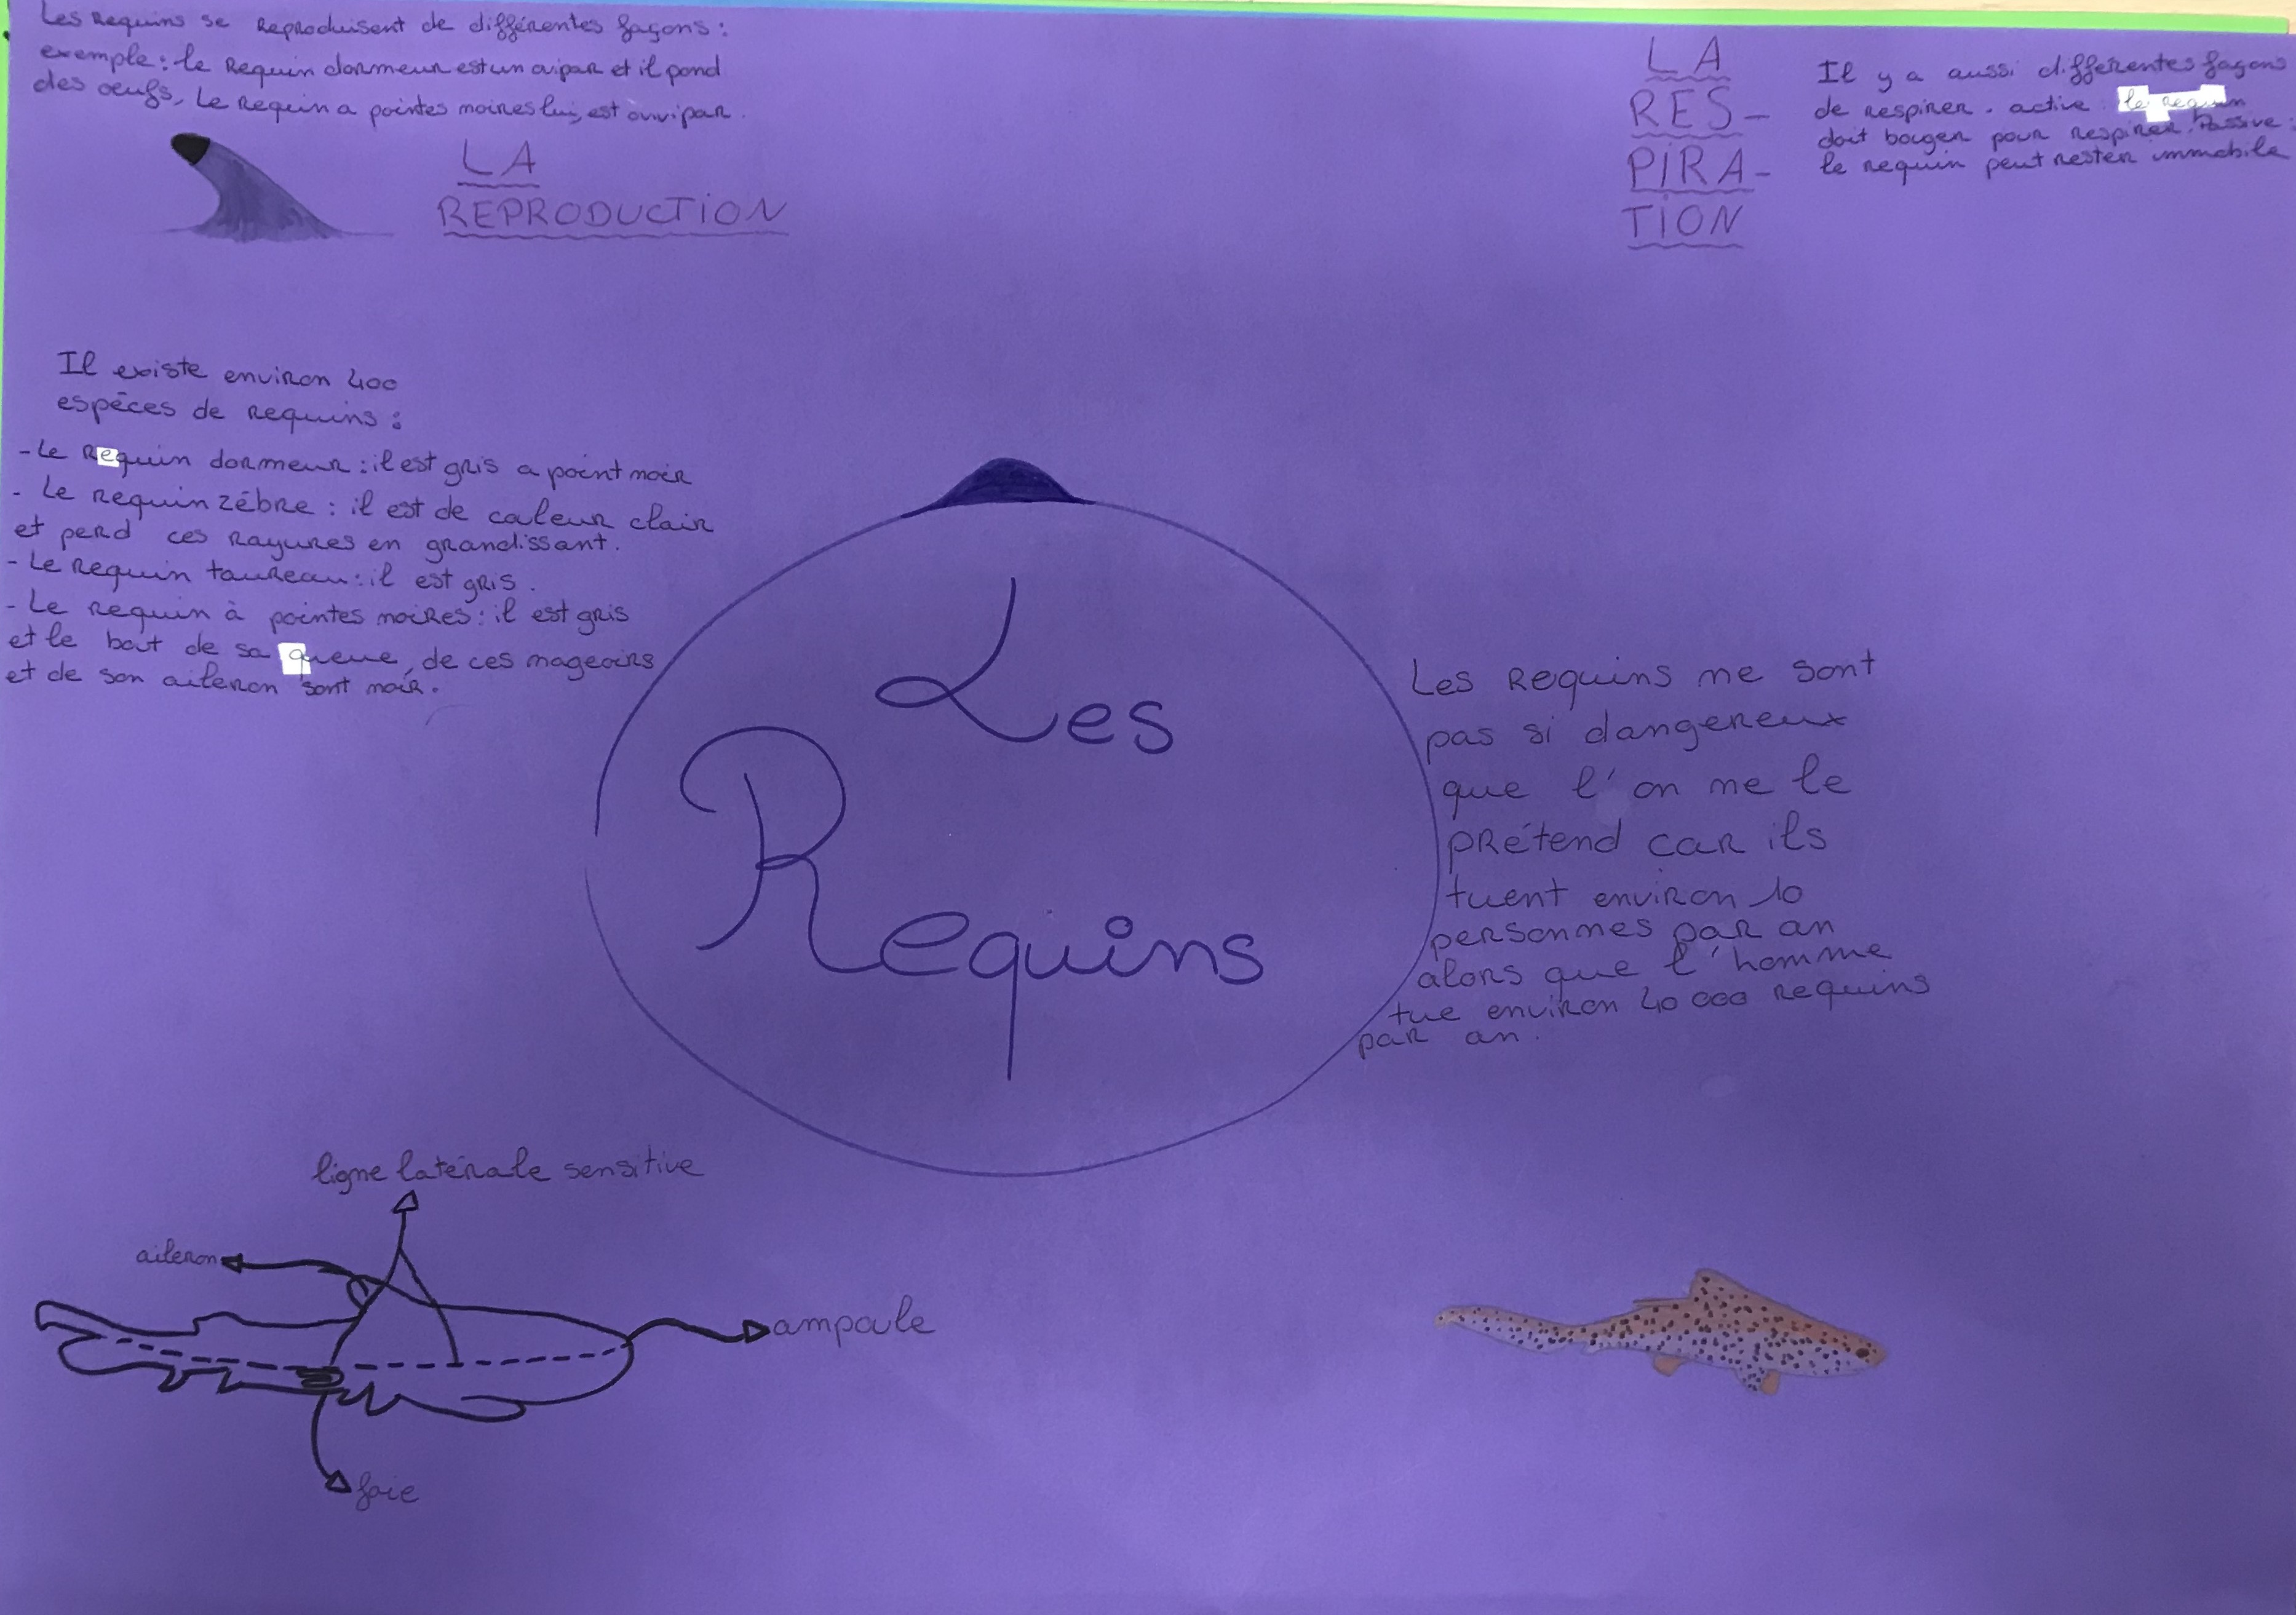 Les Requins se Reproduisent de différentes façons :
exemple : le Requin dormeur est un ovipar et il pond
des oeufs, Le Requin a pointes noires lui, est ovvipar.
LA
REPRODUCTION
LA
RES-
PIRA-
TION
Il y a aussi différentes façons
de respirer. active : le requin
doit bouger pour respirer. Passive :
le requin peut rester immobile
Il existe environ 400
espèces de requins :
- Le Requin dormeur : il est gris a point noir
- Le requin zébre : il est de couleur clair
et perd ces rayures en grandissant.
- Le Requin taureau : il est gris.
- Le requin à pointes noires : il est gris
et le bout de sa queue, de ces nageoirs
et de son aileron sont noir.
Les
Requins
Les Requins ne sont
pas si dangereux
que l'on ne le
prétend car ils
tuent environ 10
personnes par an
alors que l'homme
tue environ 40 000 requins
par an.
ligne latérale sensitive
aileron
ampoule
foie